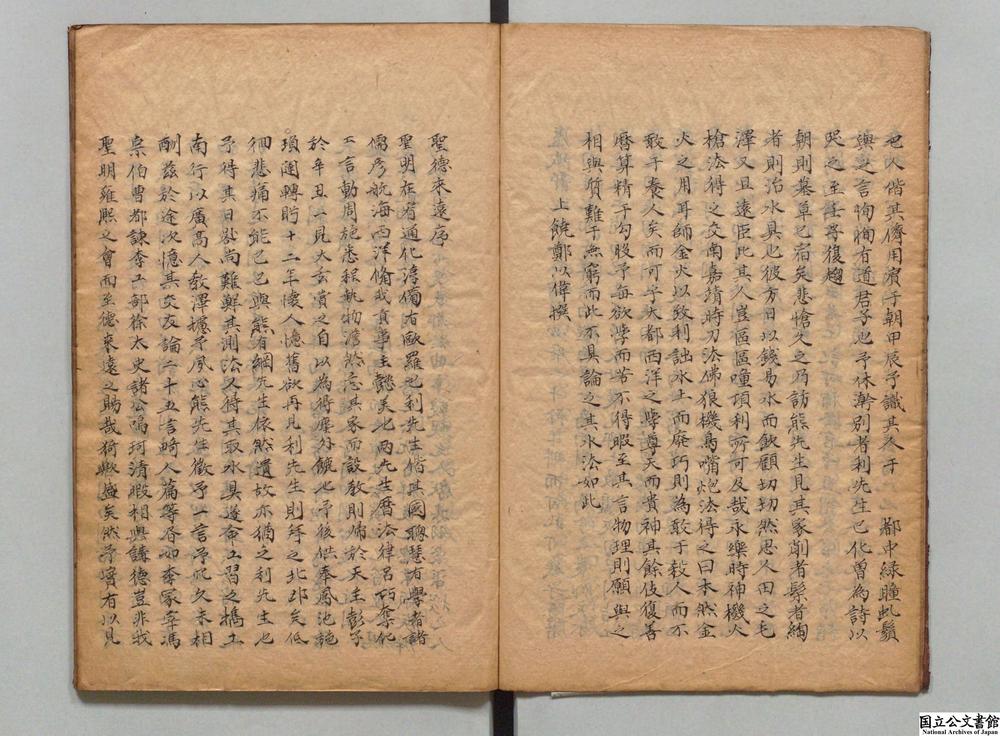 也吠偕其儕用濱于朝甲辰予識其人于　都中緑瞳虬鬚
與之言恂恂有道君子也予休澣別者利先生已化曽為詩以
哭之至壬子復趨
朝則墓草已宿矣悲愴久之乃訪熊先生見其家削者髹者絢
者則治水具也彼方日以錢易水而飲顧切切然思人田之毛
澤又且遠臣此其人豈區區踵頂利所可及哉永樂時神機火
槍法得之交南嘉靖時刀法佛狼機鳥嘴炮法得之日本然金
火之用耳師金火以致利詘水土而廃巧則為敢于殺人而不
敢于養人矣而可乎大都西洋之學尊天而貴神其餘伎復善
曆算精于勾股予每欲學而苦不得暇至其言物理則願與之
相與質難于無窮而此不具論論其水法如此
上饒鄭以偉撰
聖德來遠序
聖明在宥通化淳備有歐羅巴利先生偕其國聰慧有學者諸
儒彥航海西洋脩我貢章主懿美北兩先生曆法律呂巧奪化
工言動周旋悉程執物澹然忘其家而設教則郷於天主彭子
於辛丑一見大玄瀆之自以為得塵外饒也予後供奉鳳池旋
瑣闥轉貯十二年懷人憶舊欲再見利先生則拜之北邙矣低
徊悲痛不能已已與熊有綱先生依然還故亦猶之利先生也
予得其日晷尚難觧其測法又得其取水具遂命工習之攜工
南行以廣高人教澤據予夙心熊先生徵予一言予所久未相
酬茲於途次憶其交友論二十五言畸人篇等吞咖李冢宰馮
宗伯曹都諫李工部徐太史諸公隔珂清暇相與講德豈非我
聖明雍熙之會而至德來遠之賜哉猗歟盛矣然予寔有以見
国立公文書館
National Archives of Japan